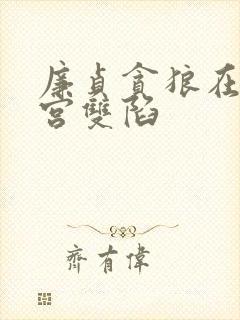 廉貞貪狼在
宮雙陷
齊有偉